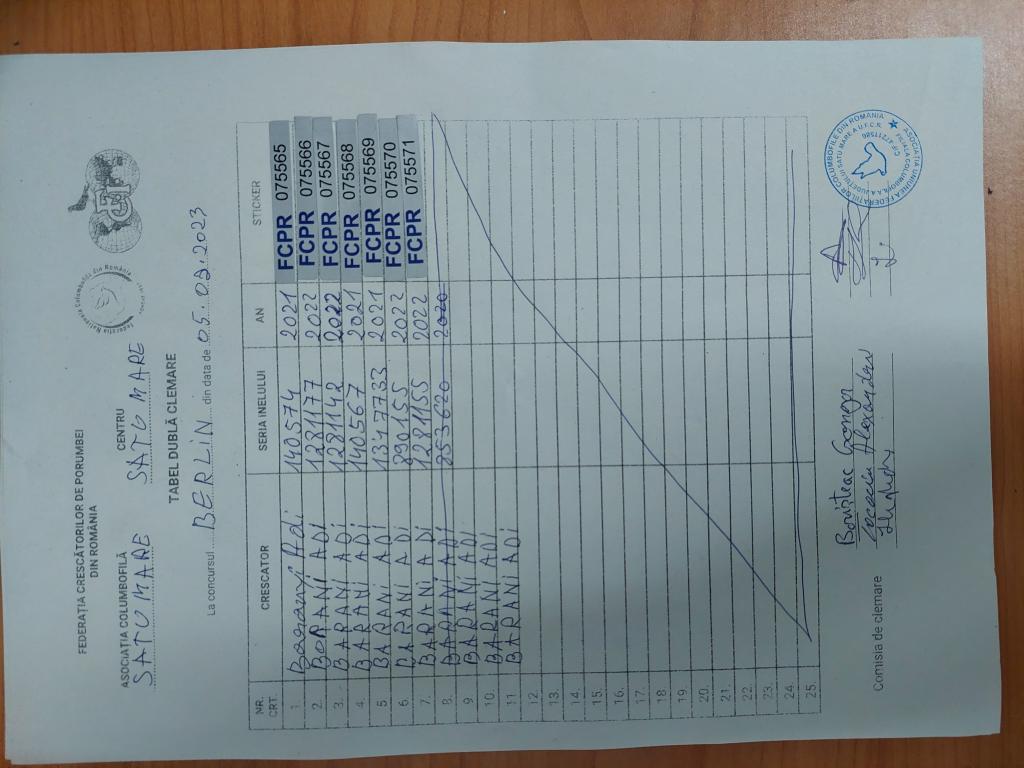 FEDERAȚIA CRESCĂTORILOR DE PORUMBEI
DIN ROMÂNIA
ASOCIAȚIA COLUMBOFILĂ CENTRU
SATU MARE SATU MARE
TABEL DUBLĂ CLEMARE
La concursul BERLIN din data de 05.08.2023
NR. CRT. CRESCATOR SERIA INELULUI AN STICKER
1. Baranyi Adi 140574 2021 FCPR 075565
2. BORANI ADI 1281177 2022 FCPR 075566
3. BARANI ADI 1281142 2022 FCPR 075567
4. BARANI ADI 140567 2021 FCPR 075568
5. BARANI ADI 1347733 2021 FCPR 075569
6. BARANI ADI 390155 2022 FCPR 075570
7. BARANI ADI 1281155 2022 FCPR 075571
8. BARANI ADI 253620 2020
9. BARANI ADI
10. BARANI ADI
11. BARANI ADI
12.
13.
14.
15.
16.
17.
18.
19.
20.
21.
22.
23.
24.
25.
Comisia de clemare
ASOCIAȚIA UNIUNEA FEDERAȚIILOR COLUMBOFILE DIN ROMANIA